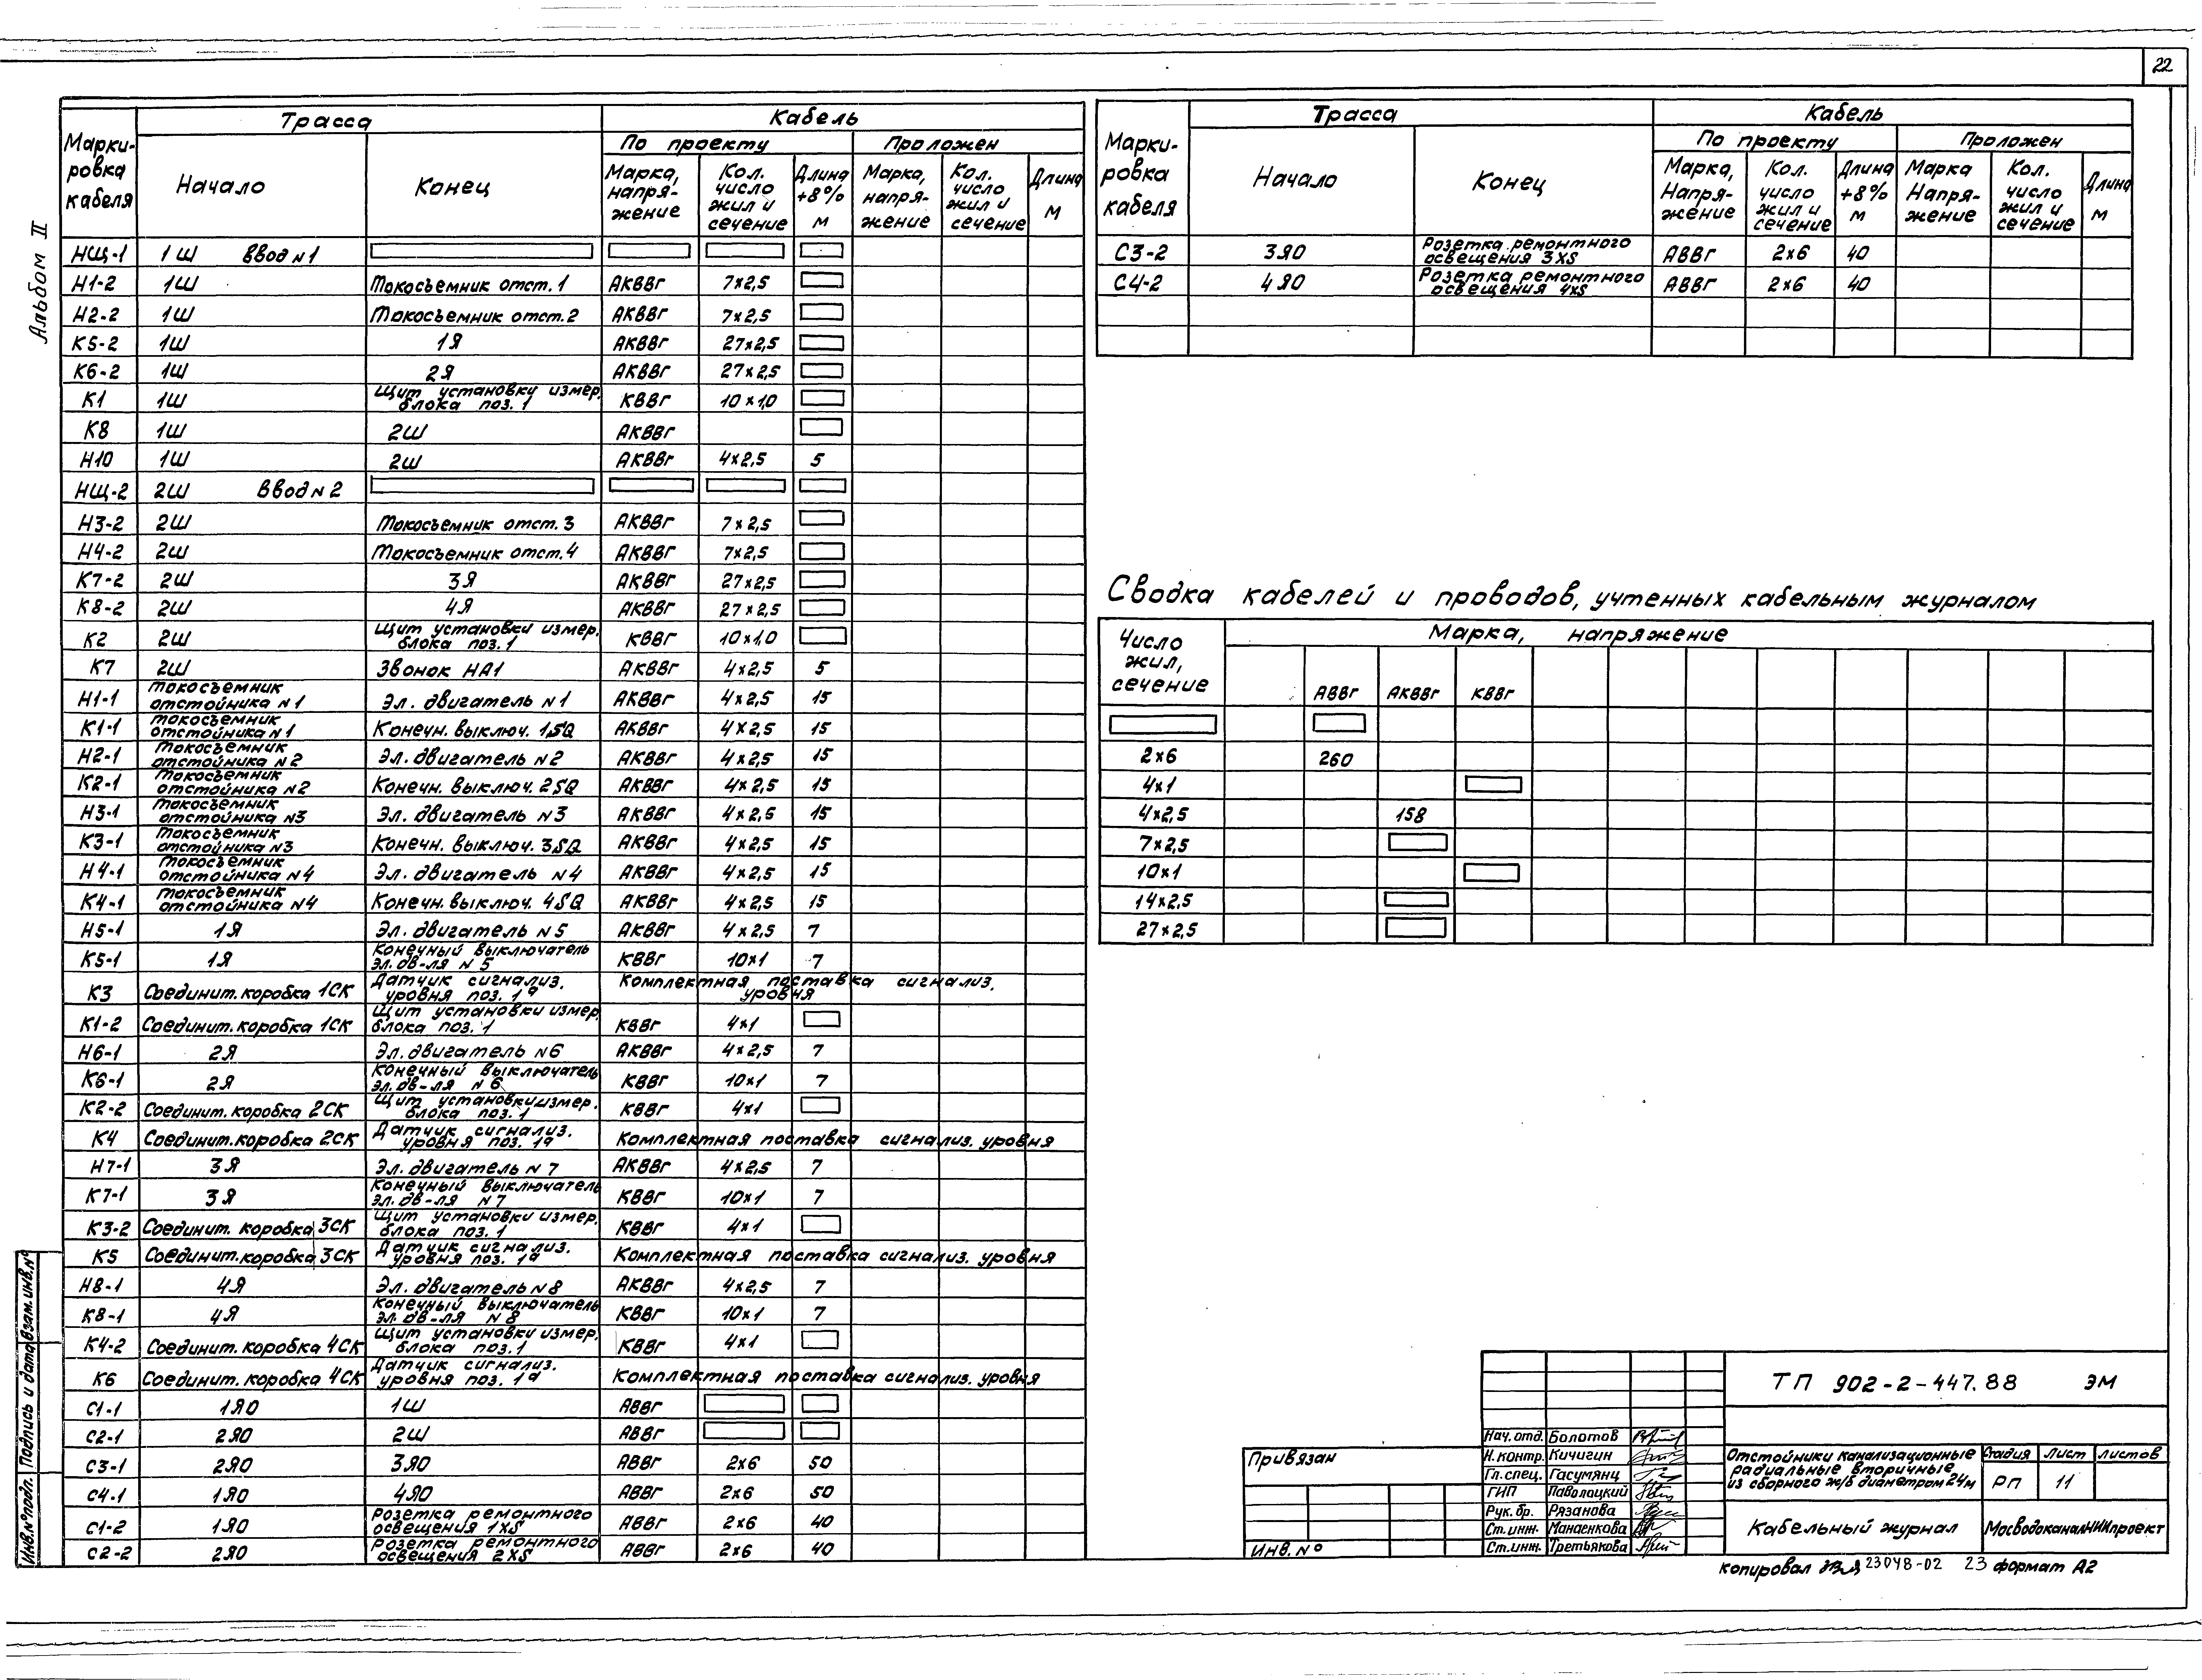 22
Альбом II
Марки-
ровка
кабеля
Трасса
Кабель
Начало
Конец
По проекту
Проложен
Марка,
напря-
жение
Кол.
число
жил и
сечение
Длина
+8%
м
Марка,
напря-
жение
Кол.
число
жил и
сечение
Длина
м
НЩ-1 1Ш Ввод N1
Н1-2 1Ш Токосъемник отст. 1 АКВВГ 7×2,5
Н2-2 1Ш Токосъемник отст. 2 АКВВГ 7×2,5
К5-2 1Ш 1Я АКВВГ 27×2,5
К6-2 1Ш 2Я АКВВГ 27×2,5
К1 1Ш Щит установки измер. блока поз. 1 КВВГ 10×1,0
К8 1Ш 2Ш АКВВГ
Н10 1Ш 2Ш АКВВГ 4×2,5 5
НЩ-2 2Ш Ввод N2
Н3-2 2Ш Токосъемник отст. 3 АКВВГ 7×2,5
Н4-2 2Ш Токосъемник отст. 4 АКВВГ 7×2,5
К7-2 2Ш 3Я АКВВГ 27×2,5
К8-2 2Ш 4Я АКВВГ 27×2,5
К2 2Ш Щит установки измер. блока поз. 1 КВВГ 10×1,0
К7 2Ш Звонок НА1 АКВВГ 4×2,5 5
Н1-1 Токосъемник отстойника N1 Эл. двигатель N1 АКВВГ 4×2,5 15
К1-1 Токосъемник отстойника N1 Конечн. выключ. 1SQ АКВВГ 4×2,5 15
Н2-1 Токосъемник отстойника N2 Эл. двигатель N2 АКВВГ 4×2,5 15
К2-1 Токосъемник отстойника N2 Конечн. выключ. 2SQ АКВВГ 4×2,5 15
Н3-1 Токосъемник отстойника N3 Эл. двигатель N3 АКВВГ 4×2,5 15
К3-1 Токосъемник отстойника N3 Конечн. выключ. 3SQ АКВВГ 4×2,5 15
Н4-1 Токосъемник отстойника N4 Эл. двигатель N4 АКВВГ 4×2,5 15
К4-1 Токосъемник отстойника N4 Конечн. выключ. 4SQ АКВВГ 4×2,5 15
Н5-1 1Я Эл. двигатель N5 АКВВГ 4×2,5 7
К5-1 1Я Конечный выключатель эл. дв-ля N5 КВВГ 10×1 7
К3 Соединит. коробка 1СК Датчик сигнализ. уровня поз. 1а Комплектная поставка сигнализ. уровня
К1-2 Соединит. коробка 1СК Щит установки измер. блока поз. 1 КВВГ 4×1
Н6-1 2Я Эл. двигатель N6 АКВВГ 4×2,5 7
К6-1 2Я Конечный выключатель эл. дв-ля N6 КВВГ 10×1 7
К2-2 Соединит. коробка 2СК Щит установки измер. блока поз. 1 КВВГ 4×1
К4 Соединит. коробка 2СК Датчик сигнализ. уровня поз. 1а Комплектная поставка сигнализ. уровня
Н7-1 3Я Эл. двигатель N7 АКВВГ 4×2,5 7
К7-1 3Я Конечный выключатель эл. дв-ля N7 КВВГ 10×1 7
К3-2 Соединит. коробка 3СК Щит установки измер. блока поз. 1 КВВГ 4×1
К5 Соединит. коробка 3СК Датчик сигнализ. уровня поз. 1а Комплектная поставка сигнализ. уровня
Н8-1 4Я Эл. двигатель N8 АКВВГ 4×2,5 7
К8-1 4Я Конечный выключатель эл. дв-ля N8 КВВГ 10×1 7
К4-2 Соединит. коробка 4СК Щит установки измер. блока поз. 1 КВВГ 4×1
К6 Соединит. коробка 4СК Датчик сигнализ. уровня поз. 1а Комплектная поставка сигнализ. уровня
С1-1 1ЯО 1Ш АВВГ
С2-1 2ЯО 2Ш АВВГ
С3-1 2ЯО 3ЯО АВВГ 2×6 50
С4-1 1ЯО 4ЯО АВВГ 2×6 50
С1-2 1ЯО Розетка ремонтного освещения 1XS АВВГ 2×6 40
С2-2 2ЯО Розетка ремонтного освещения 2XS АВВГ 2×6 40
Марки-
ровка
кабеля
Трасса
Кабель
Начало
Конец
По проекту
Проложен
Марка,
Напря-
жение
Кол.
число
жил и
сечение
Длина
+8%
м
Марка
Напря-
жение
Кол.
число
жил и
сечение
Длина
м
С3-2 3ЯО Розетка ремонтного освещения 3XS АВВГ 2×6 40
С4-2 4ЯО Розетка ремонтного освещения 4XS АВВГ 2×6 40
Сводка кабелей и проводов, учтенных кабельным журналом
Число
жил,
сечение
Марка, напряжение
АВВГ АКВВГ КВВГ
2×6 260
4×1
4×2,5 158
7×2,5
10×1
14×2,5
27×2,5
Инв. № подл. Подпись и дата Взам. инв. №
Привязан
Инв. №
Нач. отд. Болотов
Н. контр. Кичигин
Гл. спец. Гасумянц
ГИП Паволоцкий
Рук. бр. Рязанова
Ст. инж. Манаенкова
Ст. инж. Третьякова
ТП 902-2-447.88 ЭМ
Отстойники канализационные
радиальные вторичные
из сборного ж/б диаметром 24м
Стадия Лист Листов
РП 11
Кабельный журнал
МосводоканалНИИпроект
копировал 23048-02 23 формат А2